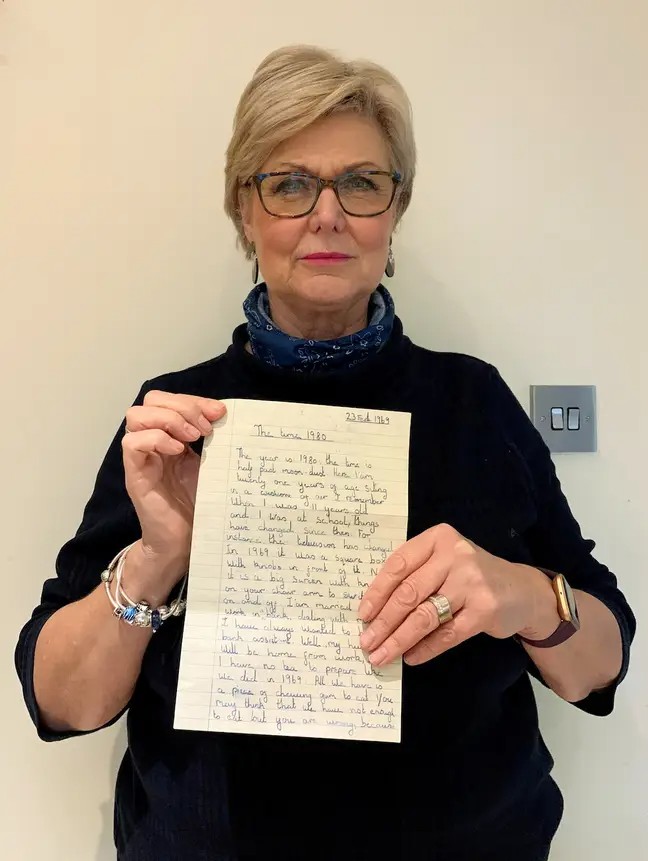 23 Feb 1969
The time 1980
The year is 1980, the time is
half past moon dust. Here I am
twenty one years of age siting
in a cushione of air I remember
When I was 11 years old
and I was at school, things
have changed since then. For
instance the television has changed
In 1969 it was a square bo
with knobs in front of it N
it is a big screen with kn
on your chair arm to swi
on and off. I am married
work in bank, dealing with
I have always wanted to
bank assistant Well, my hu
Will be home from work
I have no tea to prepare like
we did in 1969 All we have is
a piece of chewing gum to eat You
may think that we have not enough
to eat but you are wrong, because